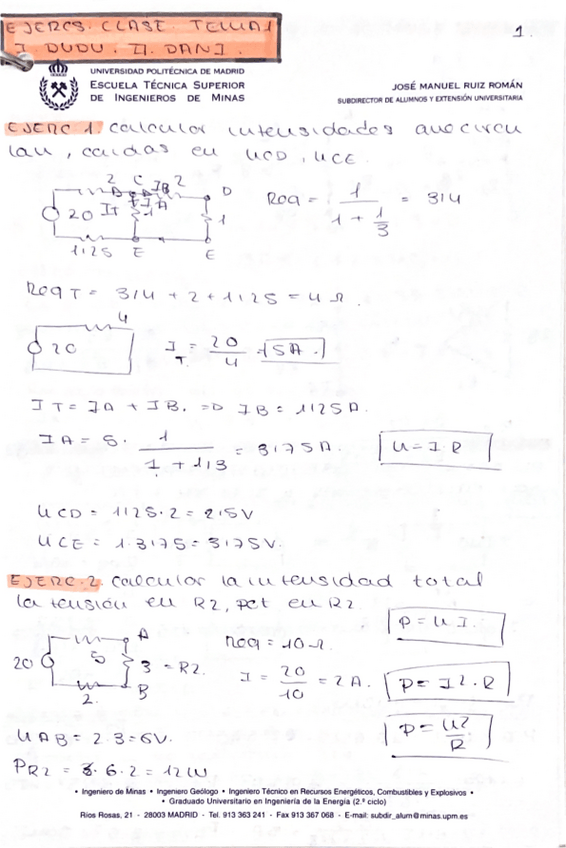 EJERCS. CLASE. TEMA 1
I. DUDU. II. DANI.
1.
UNIVERSIDAD POLITÉCNICA DE MADRID
ESCUELA TÉCNICA SUPERIOR
DE INGENIEROS DE MINAS
JOSÉ MANUEL RUIZ ROMÁN
SUBDIRECTOR DE ALUMNOS Y EXTENSIÓN UNIVERSITARIA
EJERC 1. calcular intensidades que circu
lan, caidas en UCD, UCE.
2 C IB 2 D
20 IT IA 1 1
1'25 E E
Req = 1 / (1 + 1/3) = 3/4
Req T = 3/4 + 2 + 1'25 = 4 Ω.
4
20
IT = 20/4 = 5A.
IT = IA + IB. => IB = 1'25A.
IA = 5. 1 / (1 + 1/3) = 3'75A.
U = I.R
UCD = 1'25.2 = 2'5V
UCE = 1.3'75 = 3'75V.
EJERC.2. calcular la intensidad total
la tensión en R2, pot en R2.
A
20 5 3 = R2.
2. B
Req = 10 Ω.
P = U I.
I = 20/10 = 2A.
P = I².R
UAB = 2.3 = 6V.
P = U²/R
PR2 = 6.2 = 12W
• Ingeniero de Minas • Ingeniero Geólogo • Ingeniero Técnico en Recursos Energéticos, Combustibles y Explosivos •
• Graduado Universitario en Ingeniería de la Energía (2.º ciclo)
Ríos Rosas, 21 - 28003 MADRID - Tel. 913 363 241 - Fax 913 367 068 - E-mail: subdir_alum@minas.upm.es